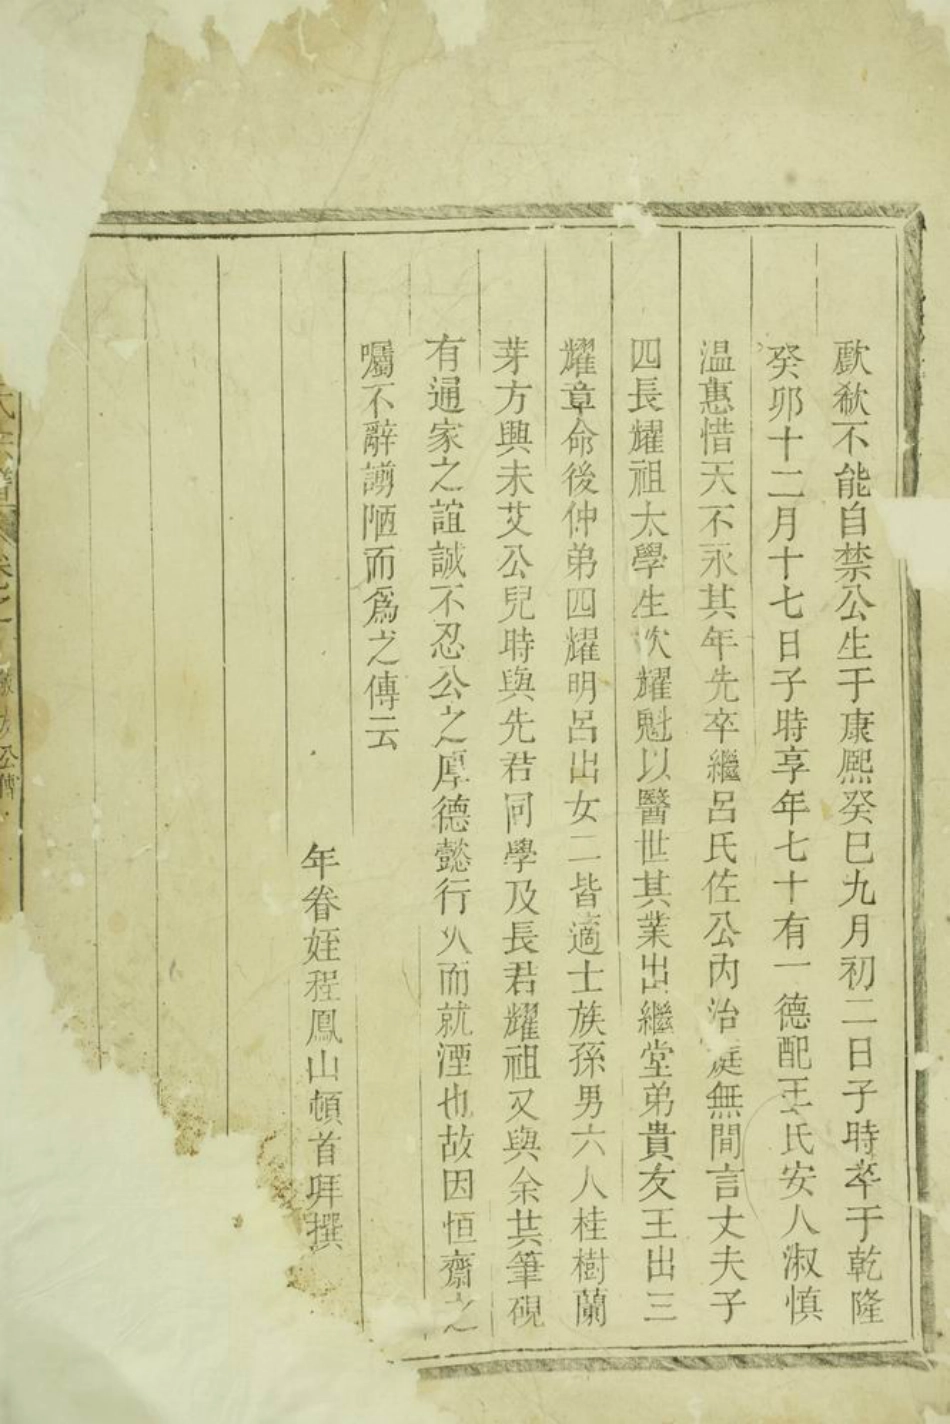 歔欷不能自禁公生于康熙癸巳九月初二日子時卒于乾隆
癸卯十二月十七日子時享年七十有一德配王氏安人淑慎
温惠惜天不永其年先卒繼呂氏佐公內治庭無間言丈夫子
四長耀祖太學生次耀魁以醫世其業出繼堂弟貴友王出三
耀章命後仲弟四耀明呂出女二皆適士族孫男六人桂樹蘭
芽方興未艾公兒時與先君同學及長君耀祖又與余共筆硯
有通家之誼誠不忍公之厚德懿行久而就湮也故因恒齋之
囑不辭譾陋而爲之傳云
年眷姪程鳳山頓首拜撰
氏宗譜
卷之
公傳